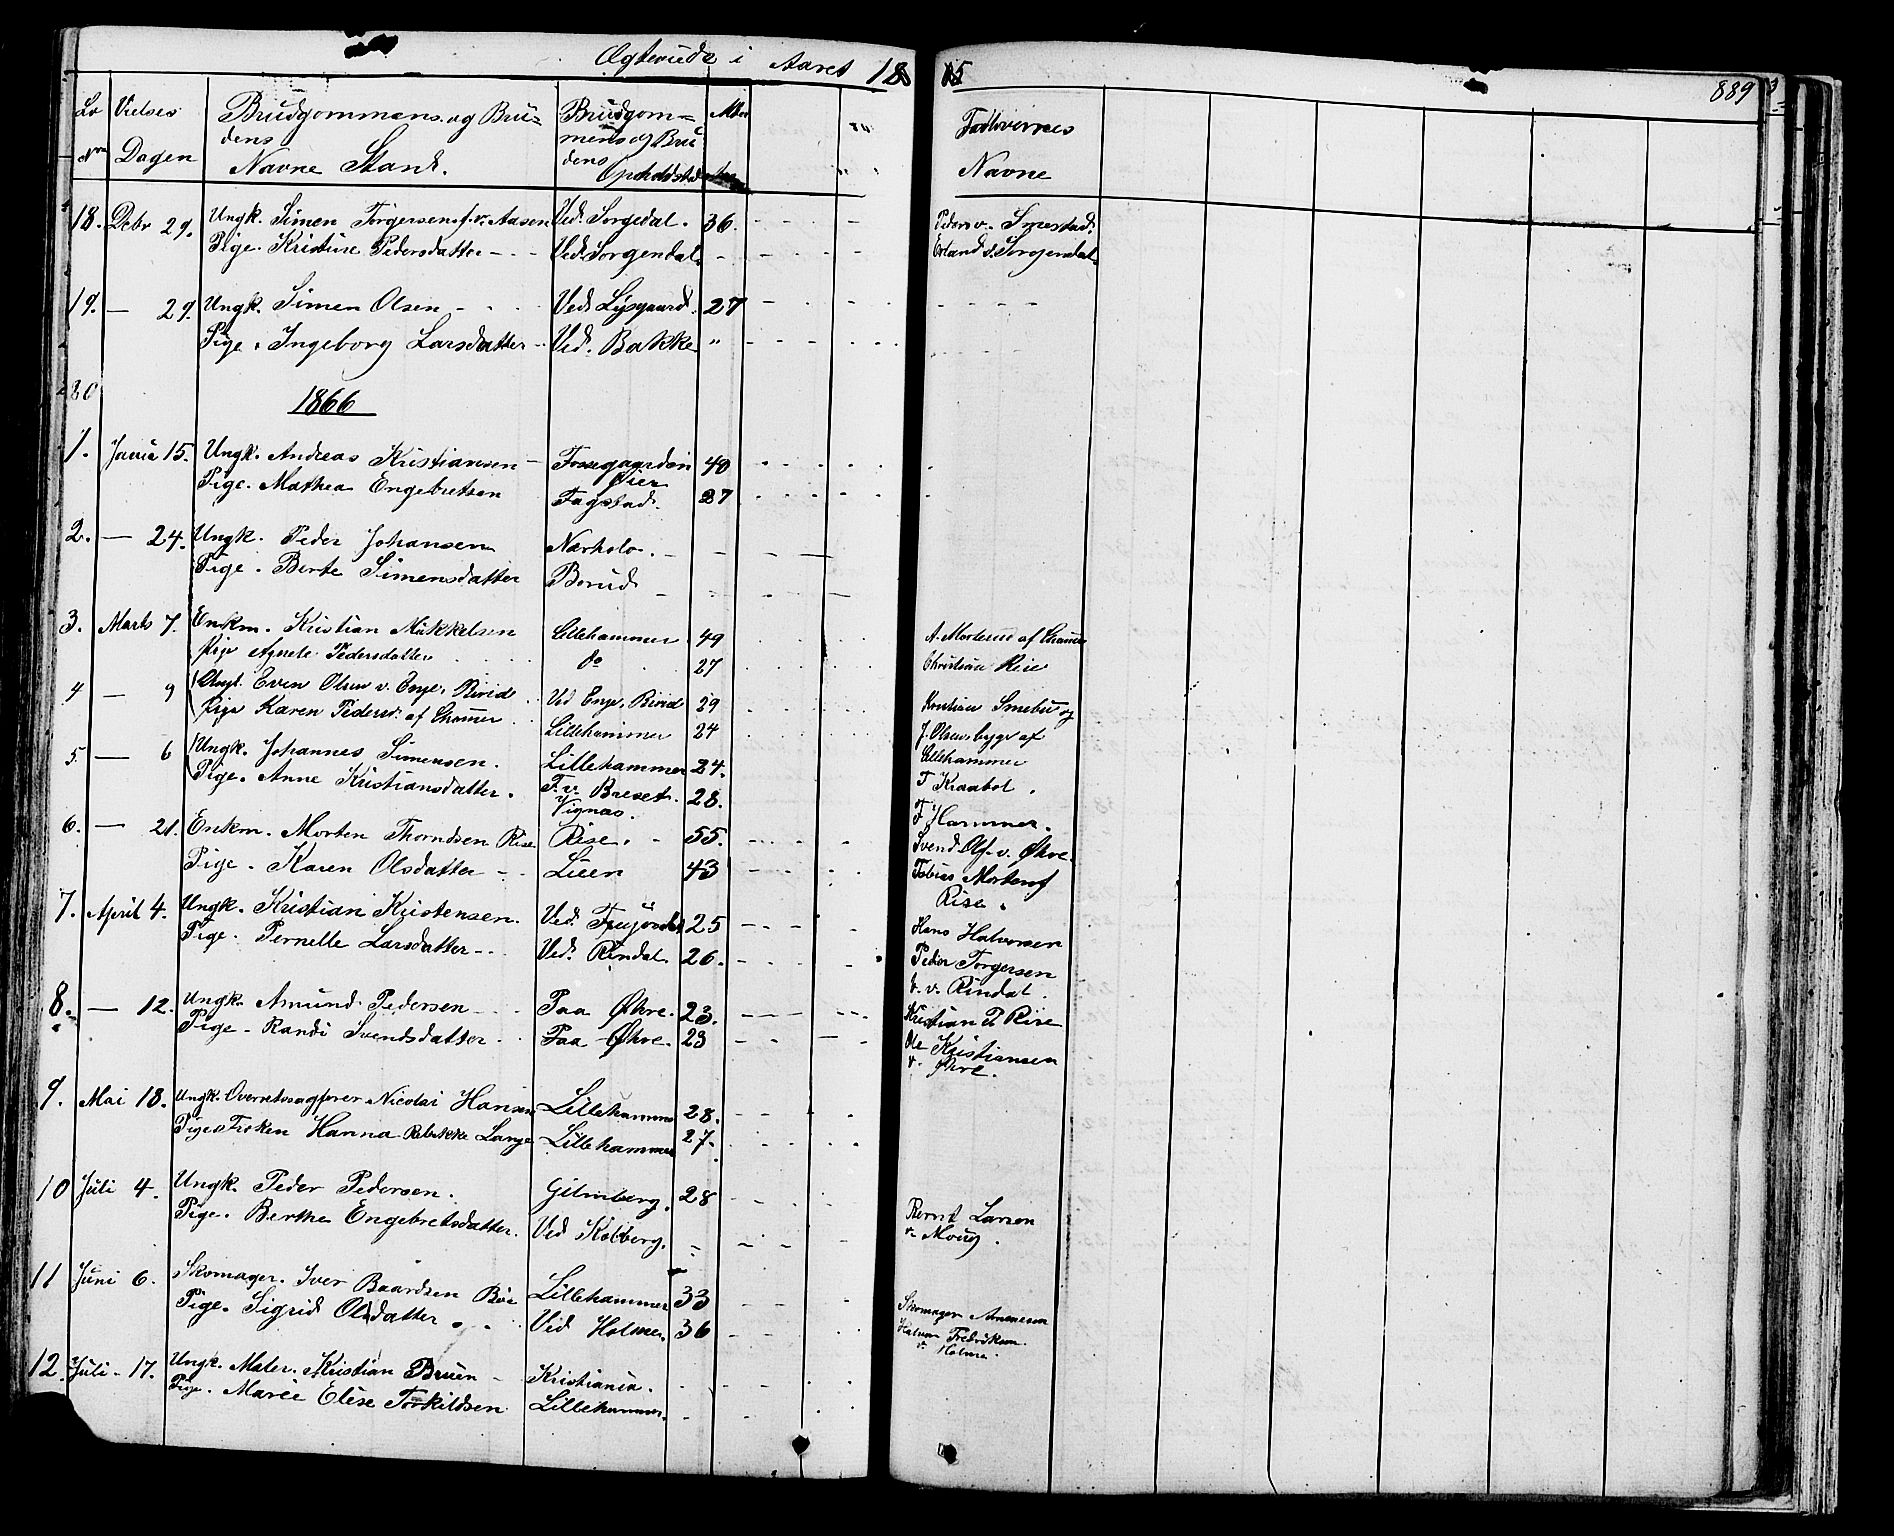 Ægteviede i Aaret 1865
889
Lø Vielses Brudgommens og Bru= Brudgom= Alder Fadlovernes
Nr Dagen dens mens og Bru Navne
Navne Stand. dens
Opholdsted
18. Debr 29. Ungk. Simen Torgersen f. v. Aasen Ved Sorgedal. 36. Smestad.
Pige. Kristine Pedersdatter Ved Sorgendal. Erland s. Sorgendal.
19. — 29. Ungk. Simen Olsen Ved Lysgaard. 27
Pige. Ingeborg Larsdatter Ved. Bakke "
20
1866
1. Janua 15. Ungk. Andreas Kristiansen Fossegaarden 40
Øier
Pige. Mathea Engebretsen Fagstad. 27
2. — 24. Ungk. Peder Johansen
Pige. Berte Simensdatter Borud
3. Marts 7. Enkm. Kristian Mikkelsen Lillehammer 49
Pige Agnete Pedersdatter do 27 Christian Rise
4 — 9 Ungk. Even Olsen v. Enge, Birid Ved Enge, Birid 29 Kristian Smebu og
Pige Karen Pedersd. af Lhammer Lillehammer 24 J. Olsen, bygs af
5. — 6 Ungk. Johannes Simensen. Lillehammer 24. Lillehammer
Pige. Anne Kristiansdatter. F. v. Breset. 28. T Kraabøl.
Vignas. F Hammer.
6. — 21. Enkm. Morten Thorndsen Rise Rise. 55. Svend Ols. v. Øhre.
Pige. Karen Olsdatter Lien 43 Tobias Mortensf
Rise.
7. April 4. Ungk. Kristian Kristensen. Ved 25 Hans Halvorsen
Pige. Pernelle Larsdatter Ved. Rindal. 26. Peder Torgersen
v. v. Rindal.
8. — 12. Ungk. Amund Pedersen Paa Øhre. 23. Kristian P Rise
Pige. Randi Svendsdatter Paa Øhre. 23 Ole Kristiansen
v. Øhre.
9. Mai 18. Ungk. Overretssagfører Nicolai Hansen Lillehammer 28.
Pige Frøken Hanna Rebekke Lange Lillehammer 27.
10 Juli 4. Ungk. Peder Pedersen. Gilmberg. 28 Bernt Larsen
Pige. Berthe Engebretsdatter. Ved Kolberg. v. Moug.
11 Juni 6. Skomager. Iver Baardsen Bøe Lillehammer 33 Skomager Arnesen
Pige. Sigrid Olsdatter Ved Holmen. 36 Halvor Fredriksen
v. Holme.
12. Juli 17. Ungk. Maler. Kristian Bruun Kristiania.
Pige. Maree Elise Torkildsen Lillehammer.